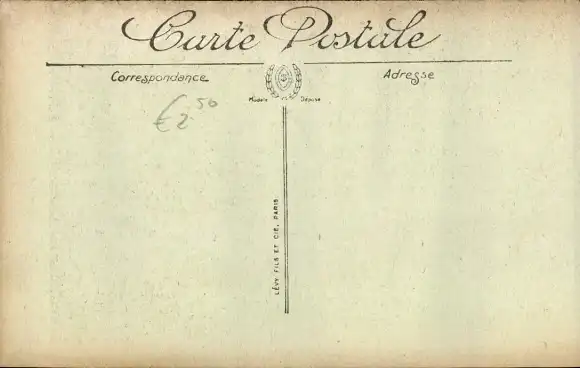 Carte Postale
Correspondance
Adresse
Modèle Déposé
€2.50
LÉVY FILS ET CIE, PARIS